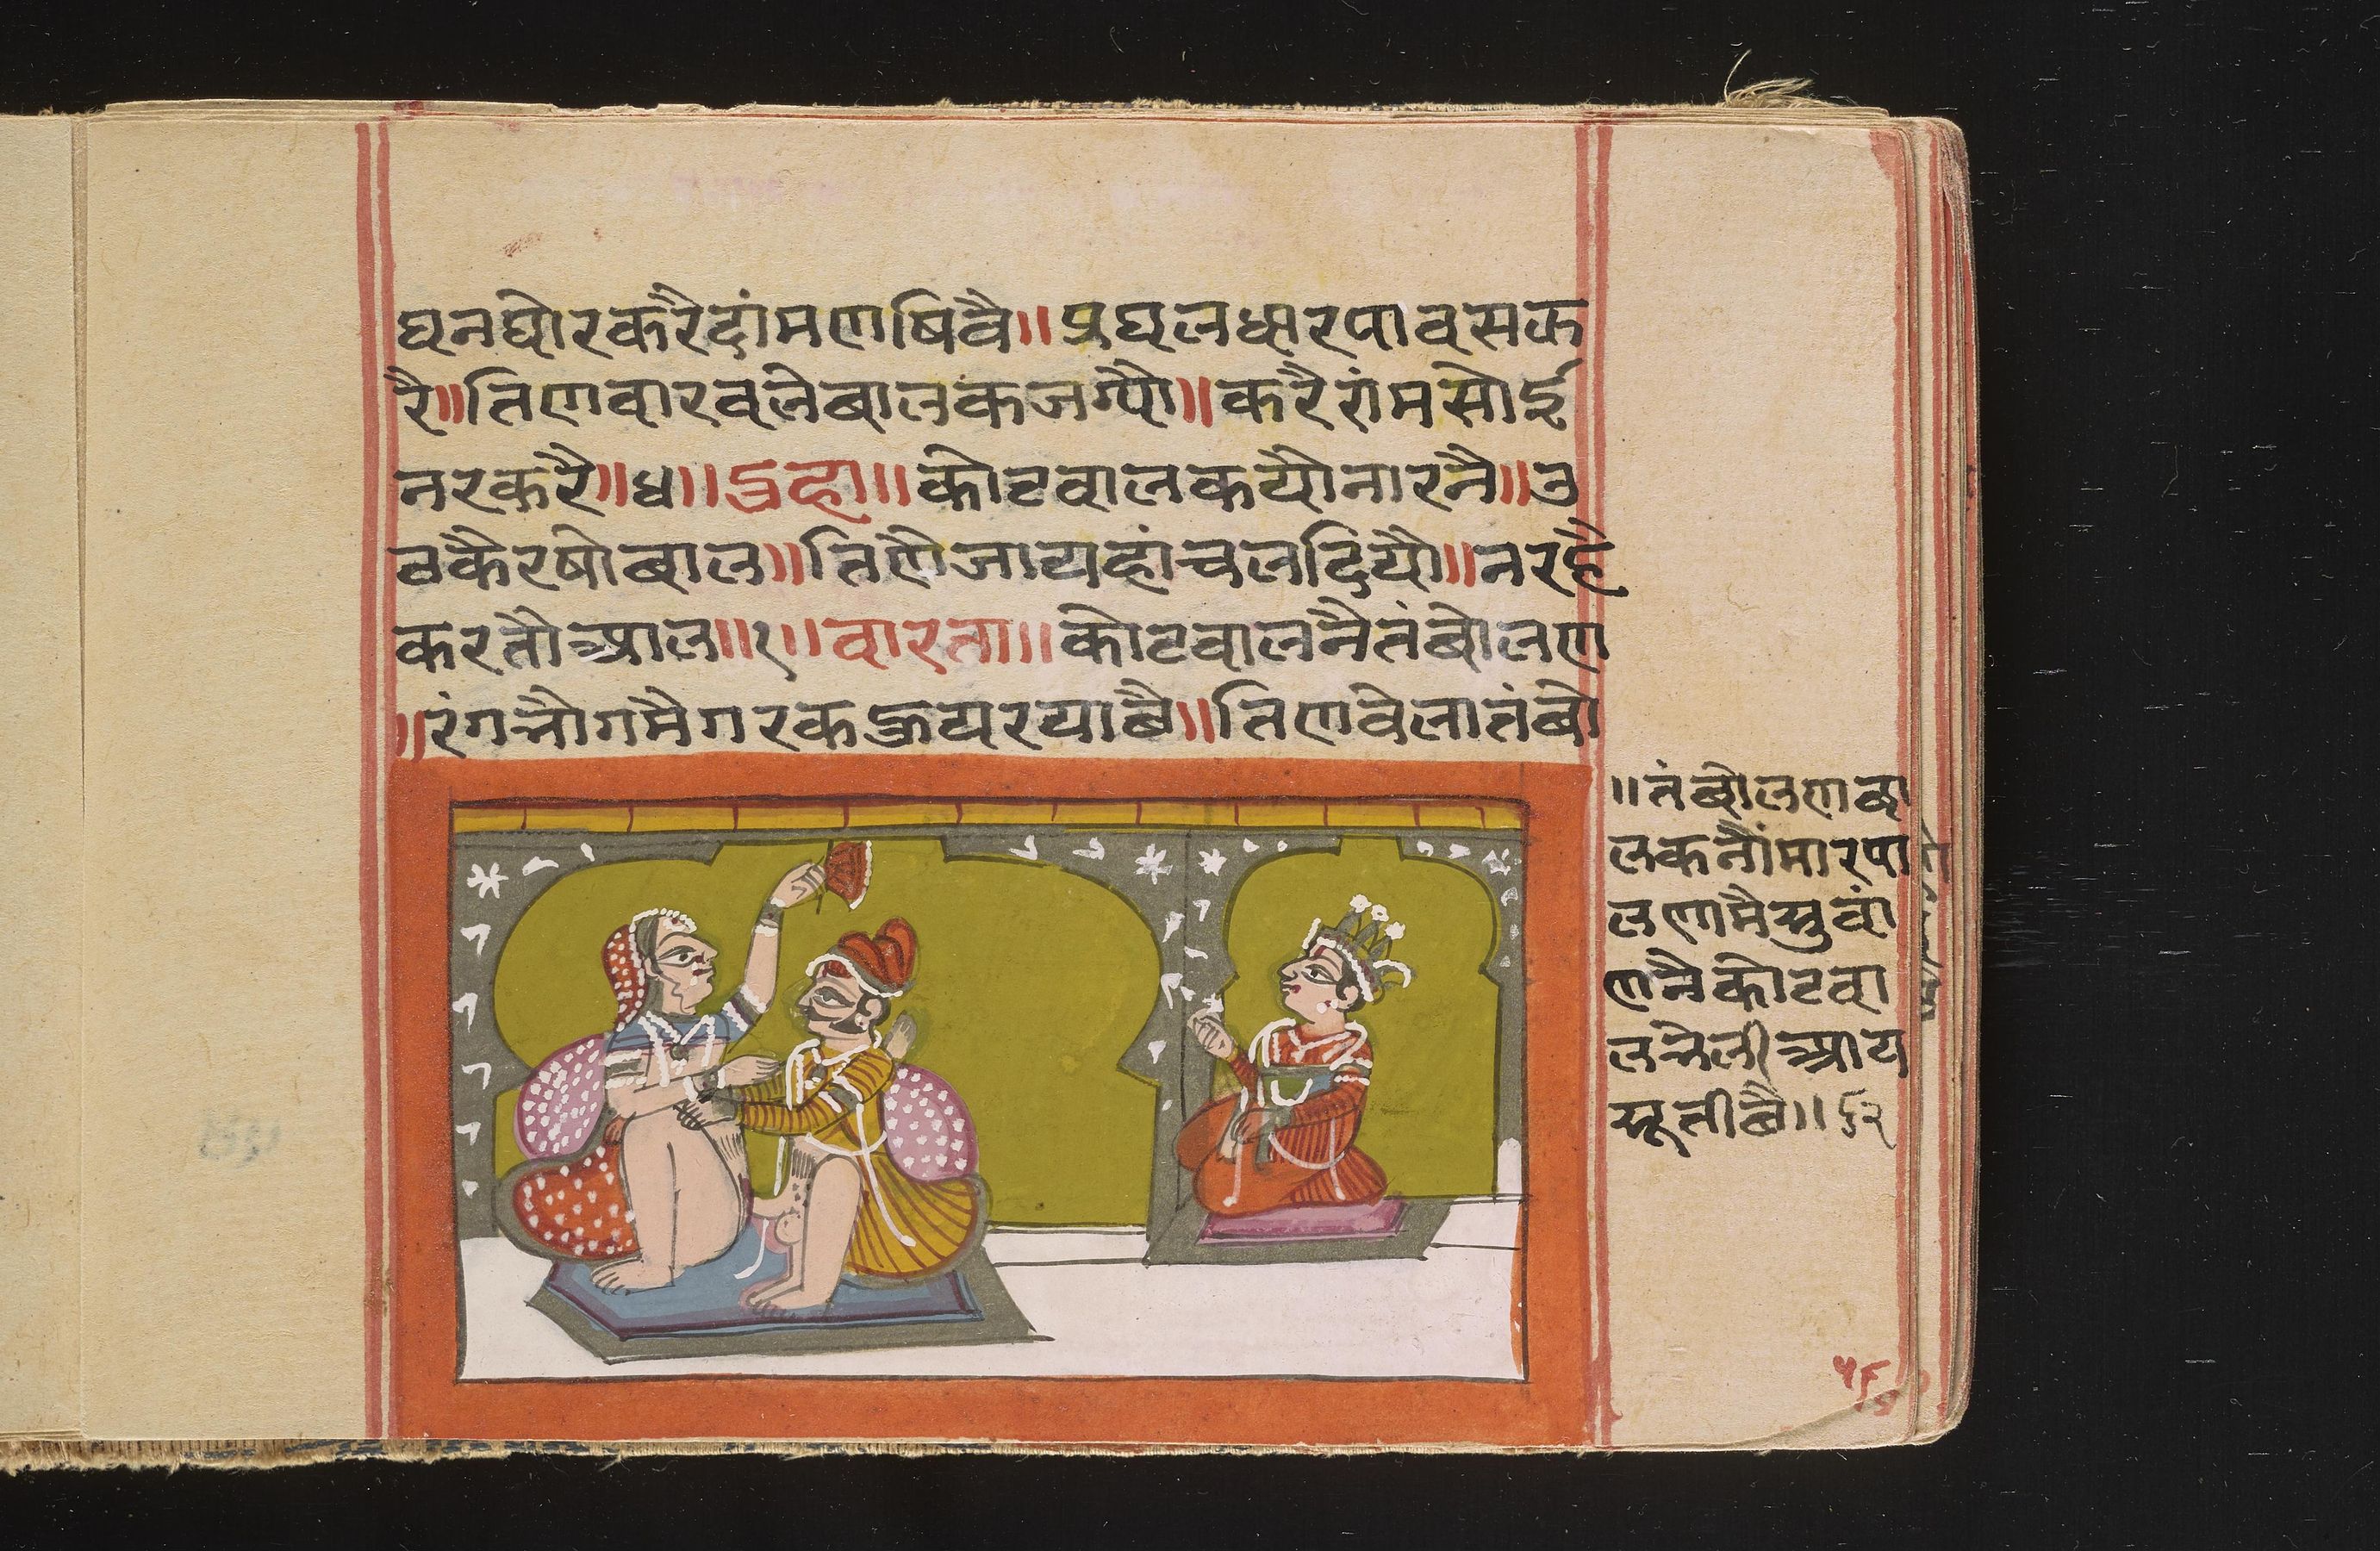 घनघोरकरैदांमणषिवै॥प्रघलधारपावसक
रै॥तिणवारवलेबालकजग्यौ॥करैरांमसोई
नरकरै॥ध॥॥दुहा॥॥कोटवालकयौनारनै॥उ
बकैरषोबाल॥तिणौजायहांचलदियौ॥नरहै
करतौआल॥१॥वारता॥॥कोटवालनैतंबोलण
॥रंगनौगमैगरकहूयरयाबै॥तिणवेलातंबो
॥तंबोलणबा
लकनौंमारपा
लणामैसुवां
णनैकोटवा
लनेलीआय
सूतीबै॥६२